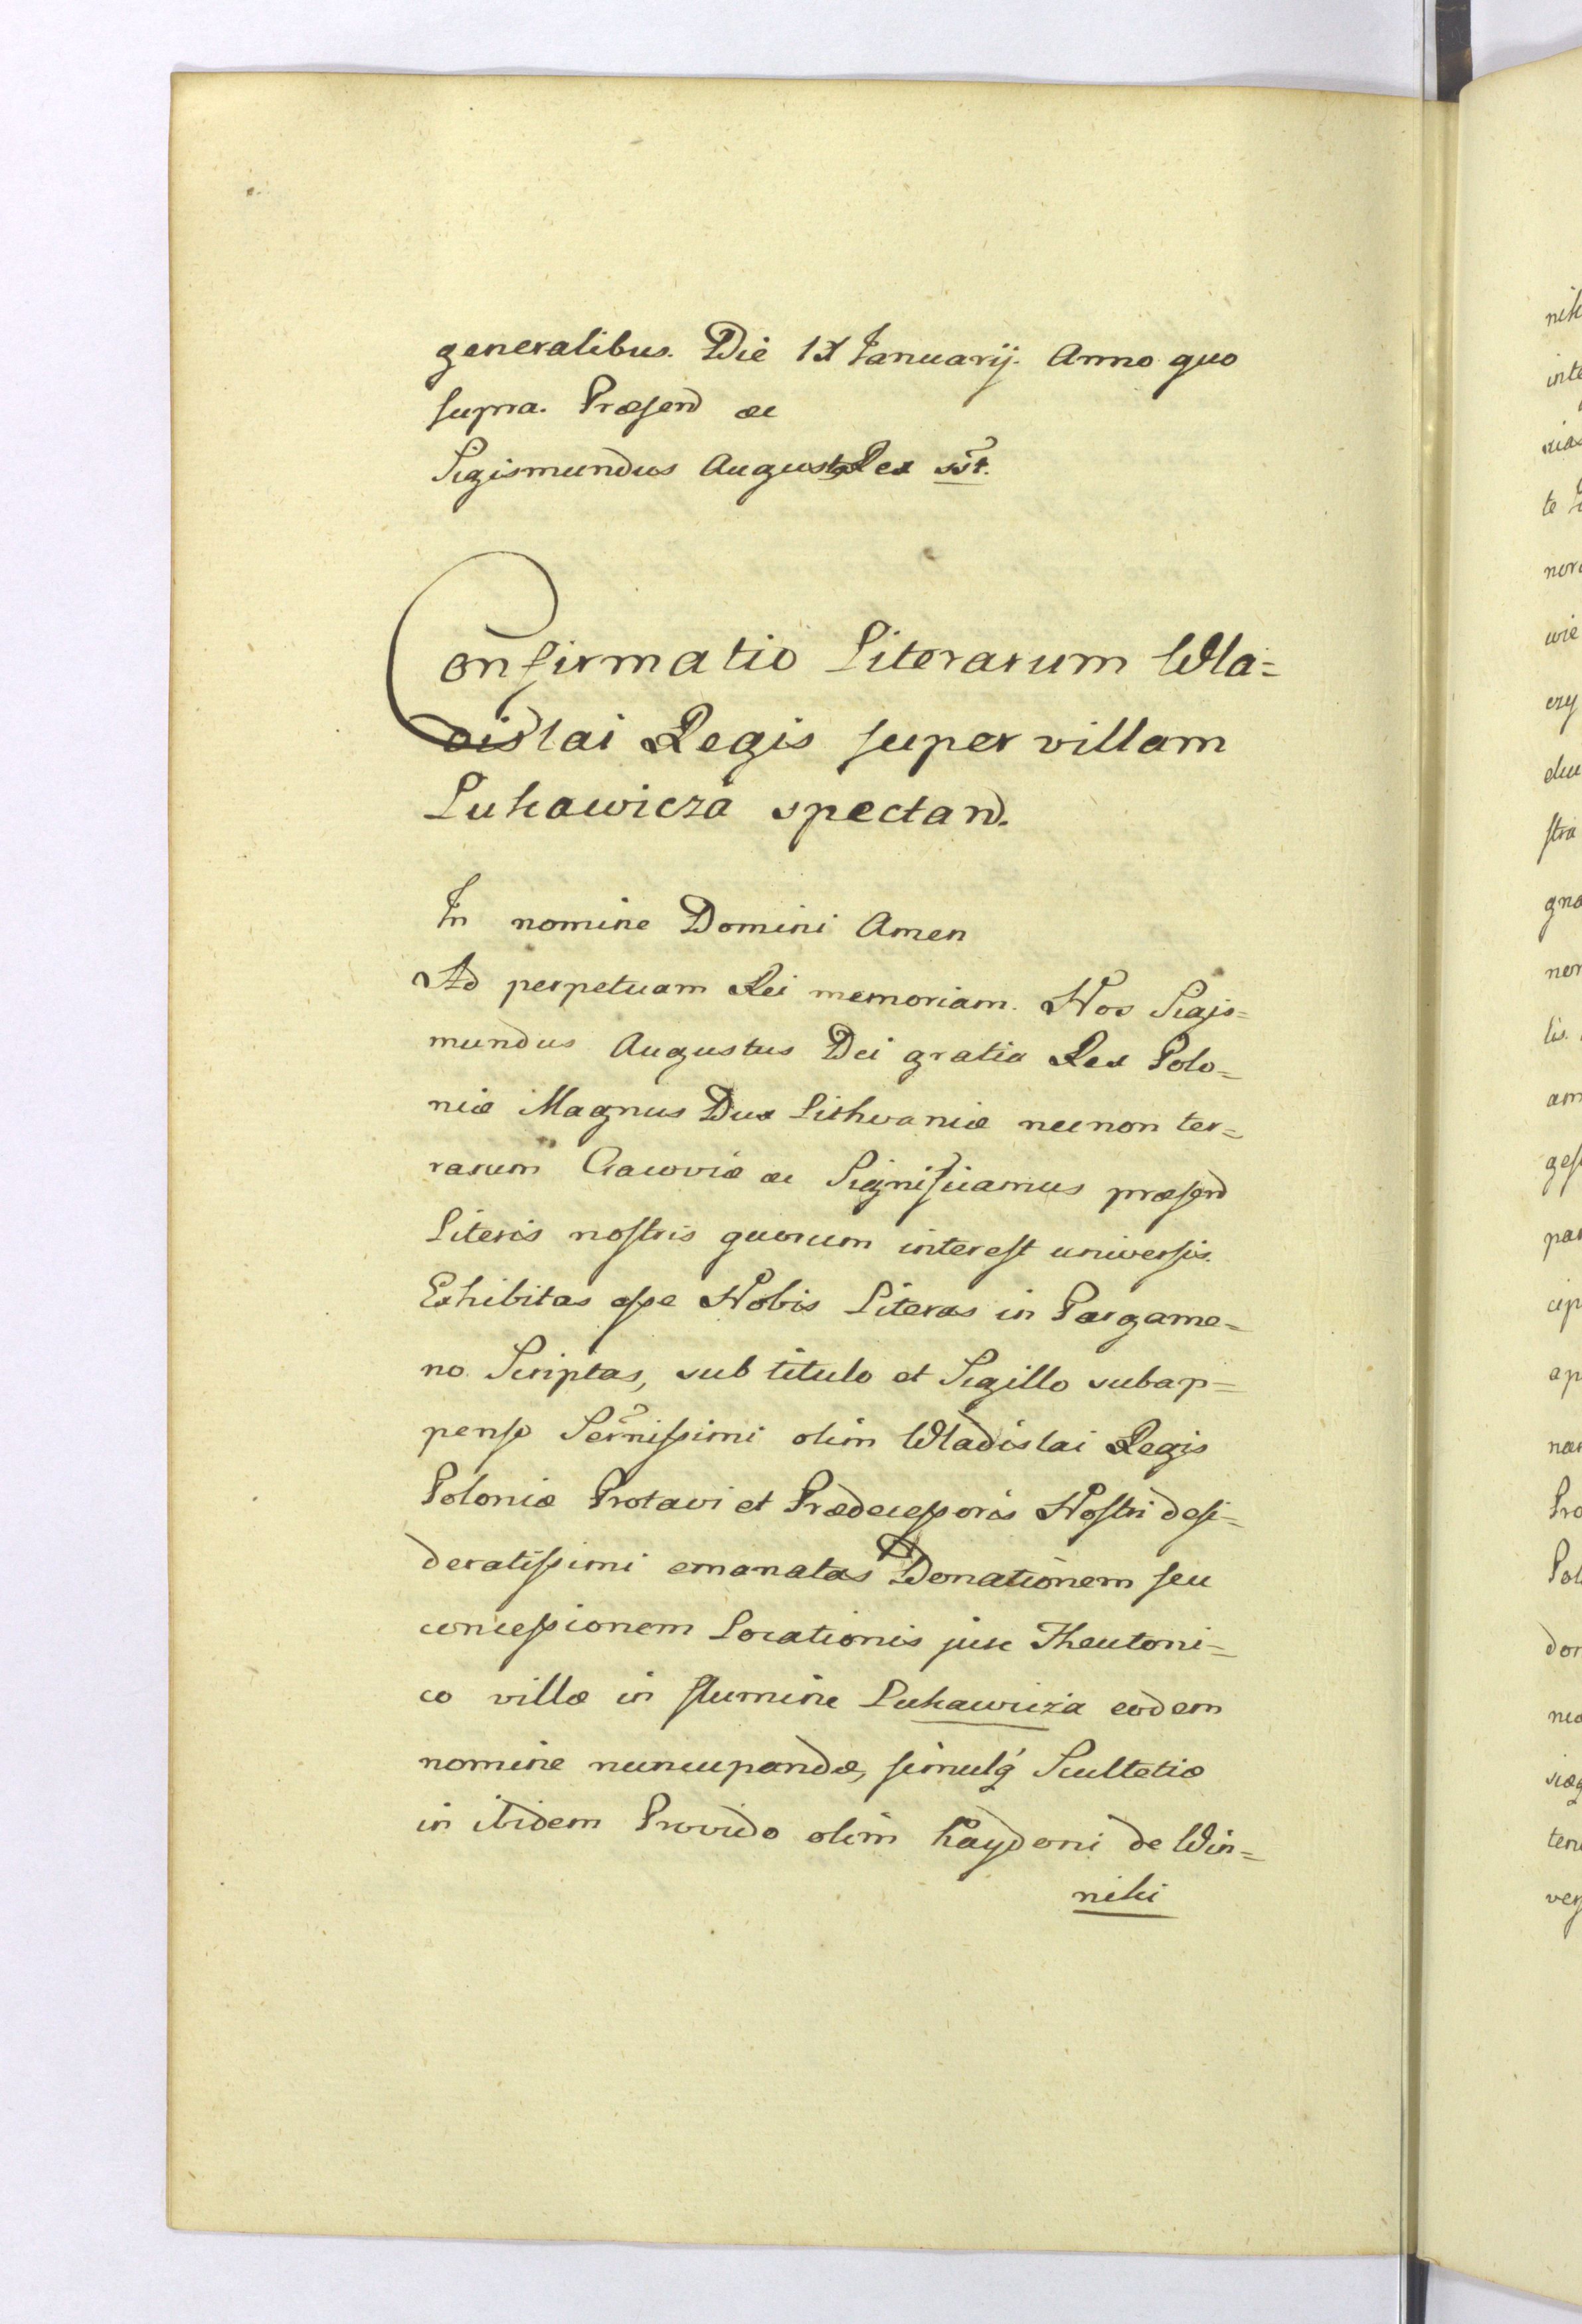 generalibus. Die IX Januarij. Anno quo
supra. Præsend ac
Sigismundus August9 Rex sst.
Confirmatio Literarum Wla=
dislai Regis super villam
Lukawicza spectand.
In nomine Domini Amen
Ad perpetuam Rei memoriam. Nos Sigis=
mundus Augustus Dei gratia Rex Polo=
niæ Magnus Dux Lithvaniæ necnon ter=
rarum Cracoviæ ac Significamus præsend
Literis nostris quorum interest universis.
Exhibitas esse Nobis Literas in Pargame=
no Scriptas, sub titulo et Sigillo subap=
penso Serñissimi olim Wladislai Regis
Poloniæ Protavi et Prædecessoris Nostri desi=
deratissimi emanatas Donationem seu
concessionem Locationis jure Theutoni=
co villæ in flumine Lukawicza eodem
nomine nuncupandæ, simulq́ Scultetiæ
in ibidem Provido olim Kaydoni de Win=
niki